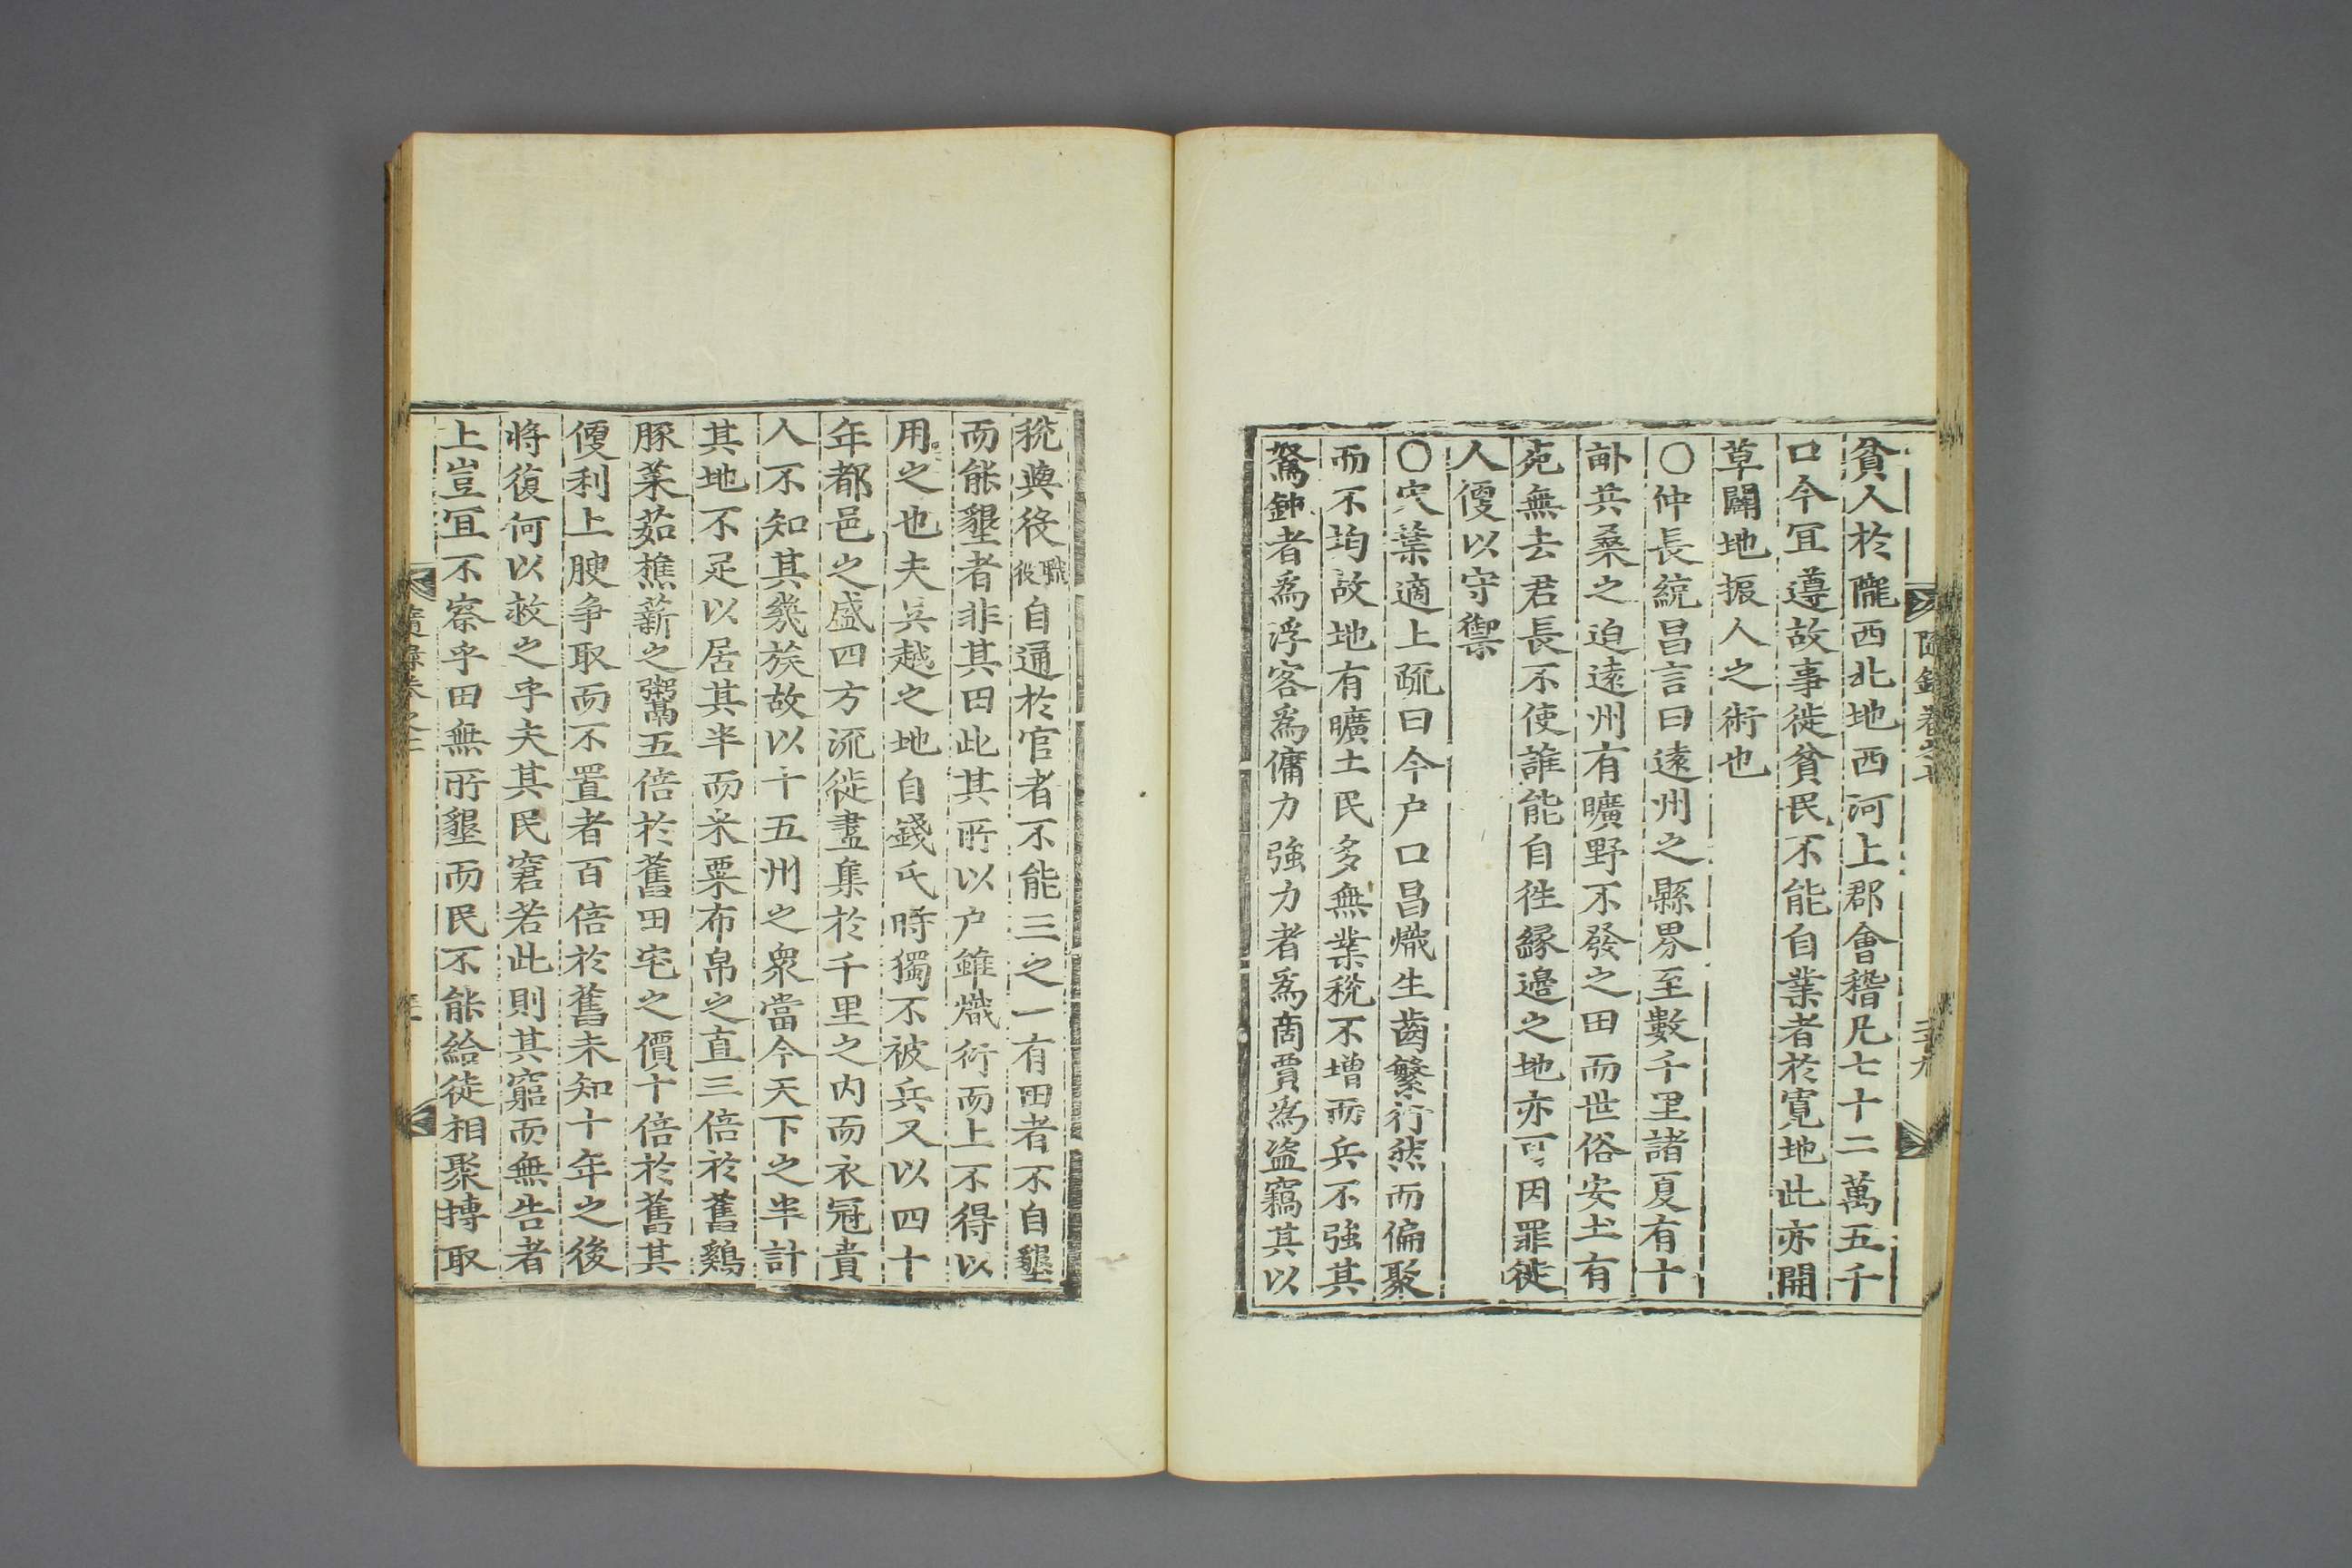 貧人於隴西北地西河上郡會稽凡七十二萬五千
口今冝遵故事徙貧民不能自業者於寛地此亦開
草闢地振人之術也
○仲長統昌言曰遠州之縣界至數千里諸夏有十
畝共桑之迫遠州有曠野不發之田而世俗安土有
死無去君長不使誰能自徃縁邉之地亦可因罪徙
人便以守禦
○宋葉適上疏曰今户口昌熾生齒繁衍然而偏聚
而不均故地有曠土民多無業稅不增而兵不強其
駑鈍者爲浮客爲傭力強力者爲商賈爲盗竊其以
稅與役職役自通於官者不能三之一有田者不自墾
而能墾者非其田此其所以户雖熾衍而上不得以
用之也夫吳越之地自錢氏時獨不被兵又以四十
年都邑之盛四方流徙盡集於千里之內而衣冠貴
人不知其幾族故以十五州之衆當今天下之半計
其地不足以居其半而米粟布帛之直三倍於舊鷄
豚菜茹樵薪之鬻五倍於舊田宅之價十倍於舊其
便利上腴爭取而不置者百倍於舊未知十年之後
將復何以救之乎夫其民窘若此則其窮而無告者
上豈冝不察乎田無所墾而民不能給徒相聚搏取